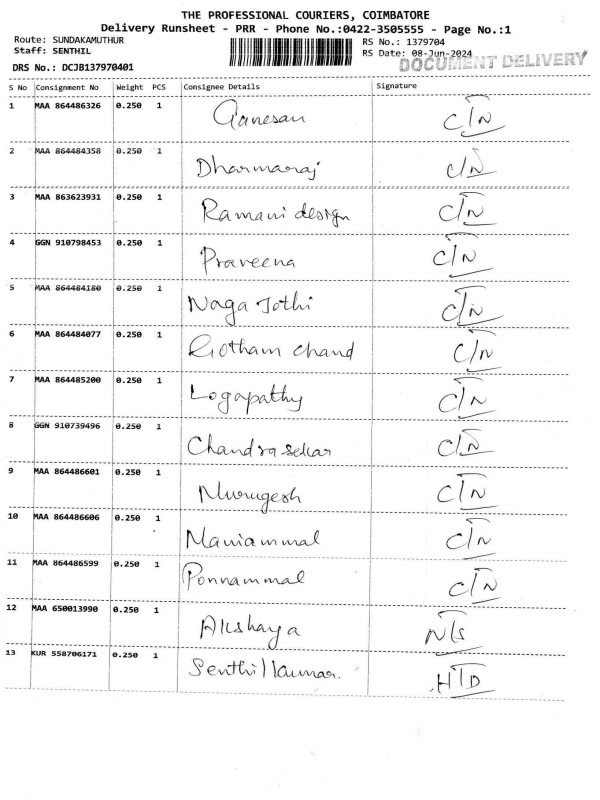 THE PROFESSIONAL COURIERS, COIMBATORE
Delivery Runsheet - PRR - Phone No.:0422-3505555 - Page No.:1
Route: SUNDAKAMUTHUR
Staff: SENTHIL
RS No.: 1379704
RS Date: 08-Jun-2024
DOCUMENT DELIVERY
DRS No.: DCJB137970401
S No Consignment No Weight PCS Consignee Details Signature
1 MAA 864486326 0.250 1 Ganesan C/N
2 MAA 864484358 0.250 1 Dharmaraj C/N
3 MAA 863623931 0.250 1 Ramani design C/N
4 GGN 910798453 0.250 1 Praveena C/N
5 MAA 864484180 0.250 1 Naga Jothi C/N
6 MAA 864484077 0.250 1 Gotham chand C/N
7 MAA 864485200 0.250 1 Logapathy C/N
8 GGN 910739496 0.250 1 Chandrasekar C/N
9 MAA 864486601 0.250 1 Murugesh C/N
10 MAA 864486606 0.250 1 Maniammal C/N
11 MAA 864486599 0.250 1 Ponnammal C/N
12 MAA 650013990 0.250 1 Akshaya N/S
13 KUR 558706171 0.250 1 Senthilkumar. HTD